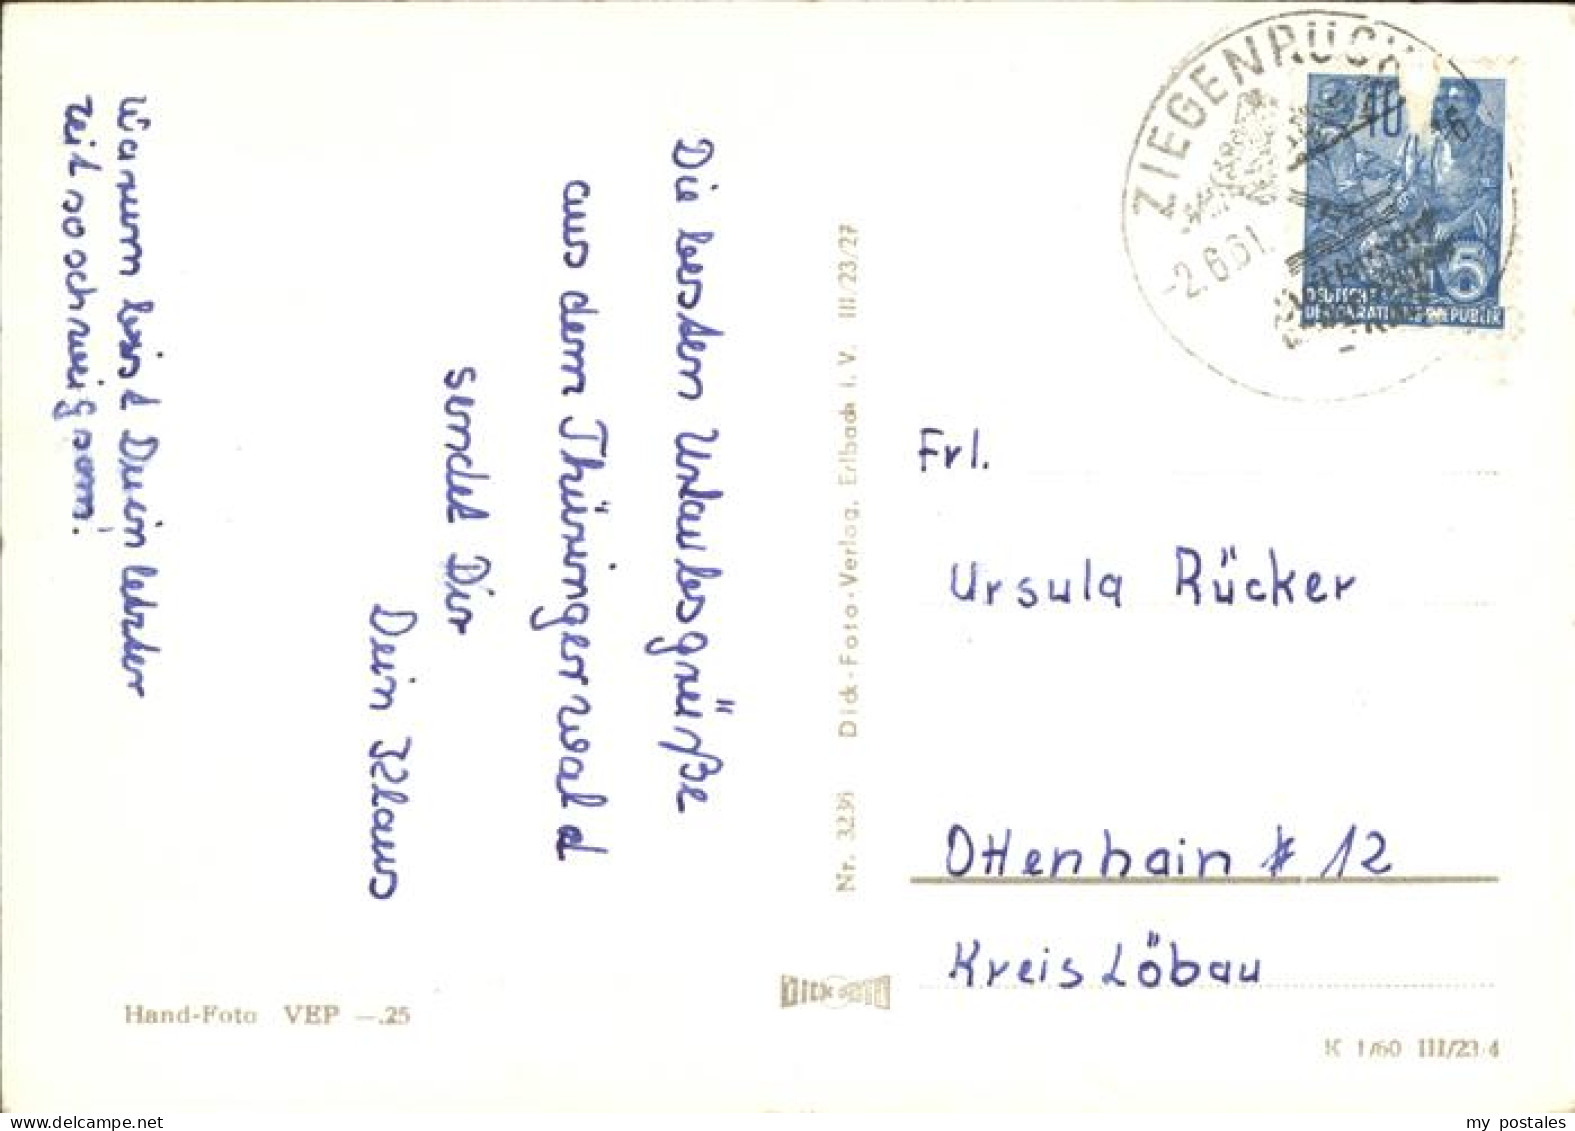 Die besten Urlaubsgrüße
aus dem Thüringerwald
sendet Dir
Dein Klaus
Warum bist Du in letzter
zeit so schweigsam!
Hand-Foto VEP —.25
Nr. 3236 Dick-Foto-Verlag, Erlbach i. V. III/23/27
DICK FOTO
ZIEGENRÜCK
-2.6.61.
10
5
DEUTSCHE
DEMOKRATISCHE REPUBLIK
Frl.
Ursula Rücker
Ottenhain # 12
Kreis Löbau
K 1/60 III/23/4
my postales